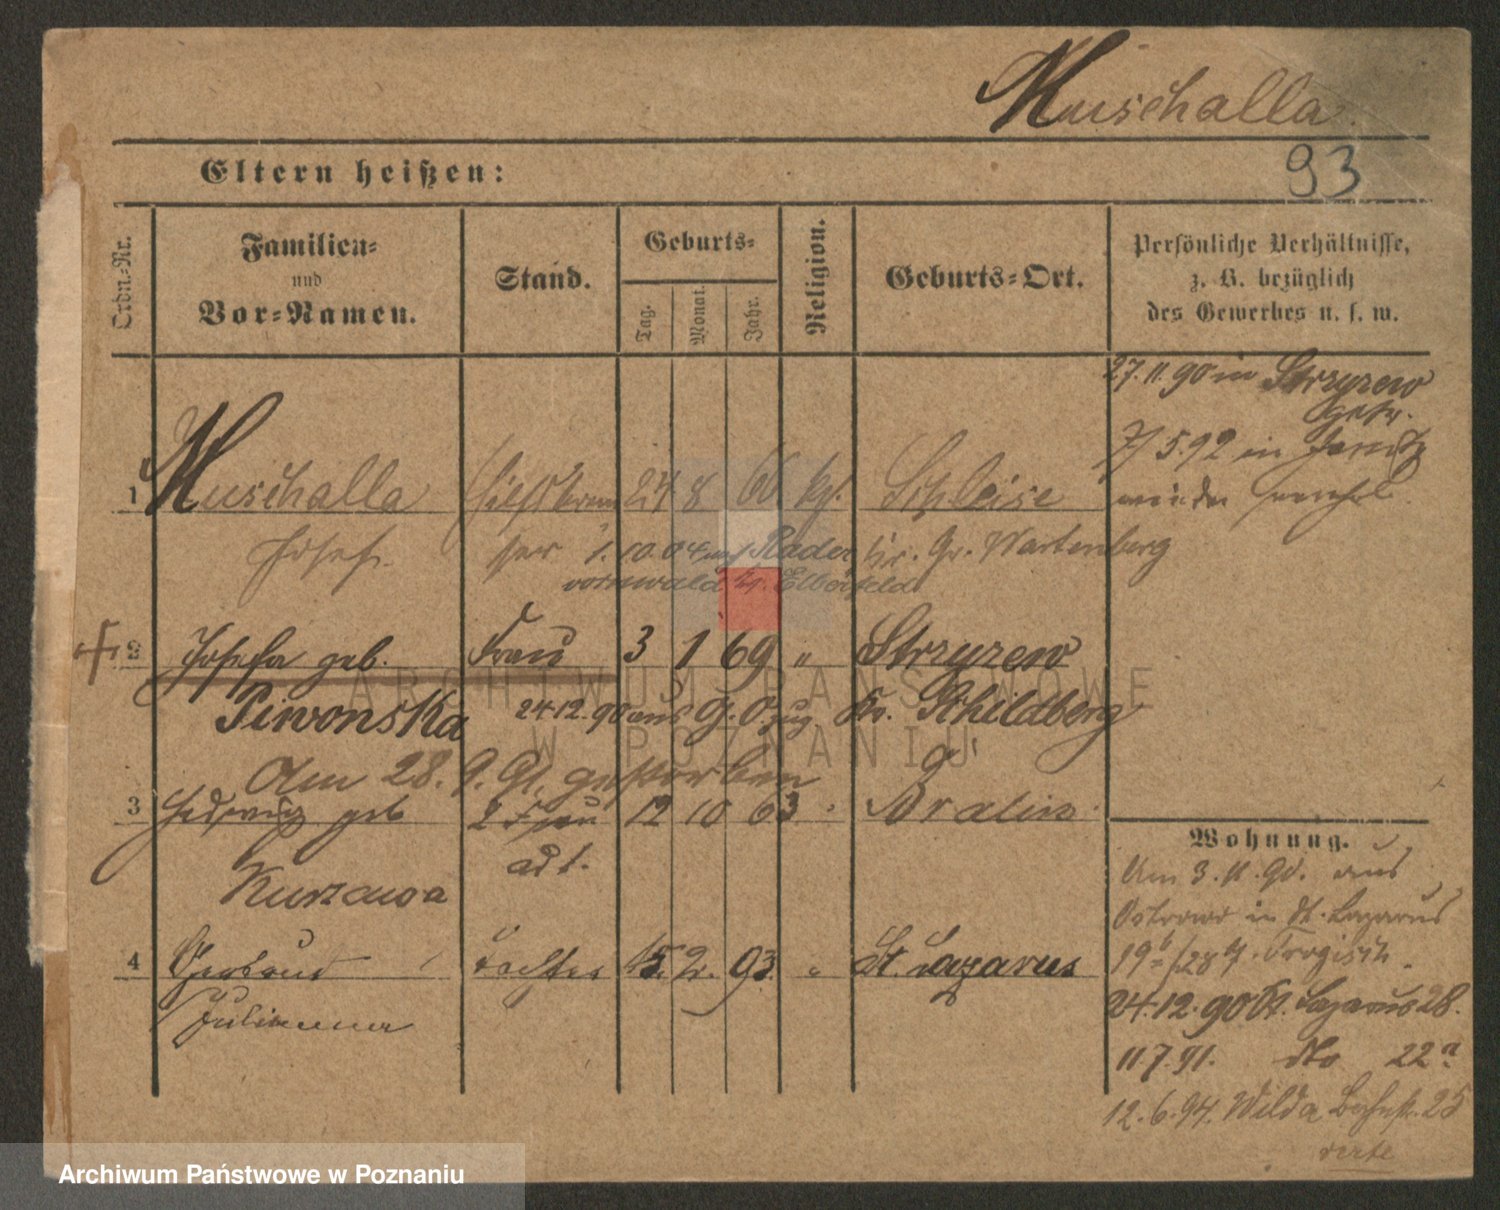 Muschalla
93
Eltern heißen:
Ordn.-Nr.
Familien-
und
Vor-Namen.
Stand.
Geburts-
Tag.
Monat.
Jahr.
Religion.
Geburts-Ort.
Persönliche Verhältnisse,
z. B. bezüglich
des Gewerbes u. s. w.
27.11.90 in Strzyzew
getr.
7/5.92 in
wieder
1 Muschalla 24 8 66 kf. Schleise
Josef 1.10.04 auf Rader Kr. Gr. Wartenberg
vormwald Kr. Elberfeld
2 Josefa geb. Frau 3 1 69 " Strzyzew
Piwonska 24.12.90 aus G. O. zug. Kr. Schildberg
Am 28.9.91. gestorben
3 Hedwig geb 2 Frau 12 10 63 Bralin
Kurzawa
4 Gertrud Tochter 15. 2. 93. " St. Lazarus
Julianna
Wohnung.
Am 3.11.90. aus
Ostrowo in St. Lazarus
24.12.90 St. Lazarus 28.
11.7.91. dto 22a
12.6.94. Wilda Bahnstr. 25
verte
ARCHIWUM PAŃSTWOWE
W POZNANIU
Archiwum Państwowe w Poznaniu